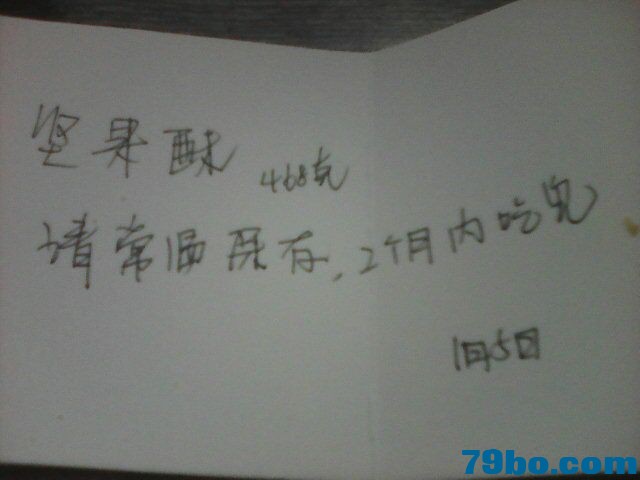 坚果酥 468克
请常温保存,2个月内吃完
1月5日
79bo.com